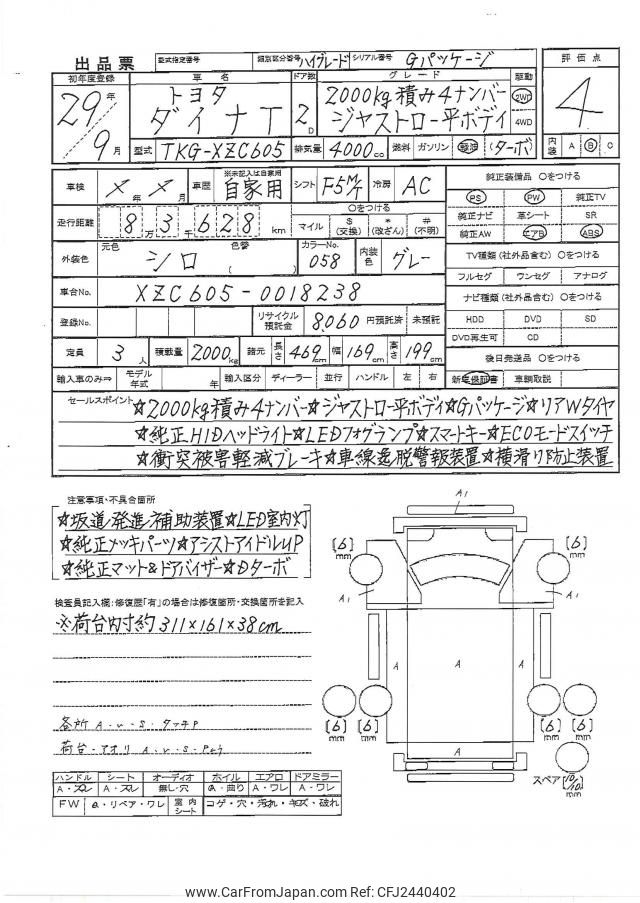 出品票 型式指定番号 類別区分番号 ハイグレード シリアル番号 Gパッケージ
初年度登録 車名 ドア数 グレード 駆動 評価点
29年 9月 トヨタ ダイナT 2D 2000kg積み4ナンバー 2WD 4
ジャストロー平ボディ 4WD
型式 TKG-XZC605 排気量 4000cc 燃料 ガソリン 軽油 (ターボ) 内装 A B C
車検 X年X月 車歴 ※未記入は自家用 自家用 シフト F5M/T 冷房 AC 純正装備品 〇をつける
PS PW 純正TV
走行距離 8万3千628km 〇をつける マイル $(交換) *(改ざん) #(不明) 純正ナビ 革シート SR
純正AW エアB ABS
外装色 元色 シロ 色替( ) カラーNo. 058 内装色 グレー TV種類(社外品含む)〇をつける
フルセグ ワンセグ アナログ
車台No. XZC605-0018238 ナビ種類(社外品含む)〇をつける
登録No. リサイクル預託金 8,060円預託済 未預託 HDD DVD SD
DVD再生可 CD
定員 3人 積載量 2000kg 諸元 長さ 469cm 幅 169cm 高さ 199cm 後日発送品 〇をつける
輸入車のみ⇒ モデル年式 年 輸入区分 ディーラー 並行 ハンドル 左 右 新車保証書 車輌取説
セールスポイント ☆2000kg積み4ナンバー☆ジャストロー平ボディ☆Gパッケージ☆リアWタイヤ
☆純正HIDヘッドライト☆LEDフォグランプ☆スマートキー☆ECOモードスイッチ
☆衝突被害軽減ブレーキ☆車線逸脱警報装置☆横滑り防止装置
注意事項・不具合箇所
☆坂道発進補助装置☆LED室内灯
☆純正メッキパーツ☆アシストアイドルUP
☆純正マット&ドアバイザー☆Dターボ
検査員記入欄:修復歴「有」の場合は修復箇所・交換箇所を記入
※荷台内寸約311×161×38cm
各所 A・U・S・タッチP
荷台・アオリ A・U・S・P
A1
[6]mm [6]mm
A1 A1
A A A
[6]mm [6]mm [6]mm [6]mm
A
スペア [10/10]mm
ハンドル シート オーディオ ホイル エアロ ドアミラー
A・スレ A・スレ 無し・穴 A・曲り A・ワレ A・ワレ
FW A・リペア・ワレ 室内シート コゲ・穴・汚れ・キズ・破れ
www.CarFromJapan.com Ref: CFJ2440402